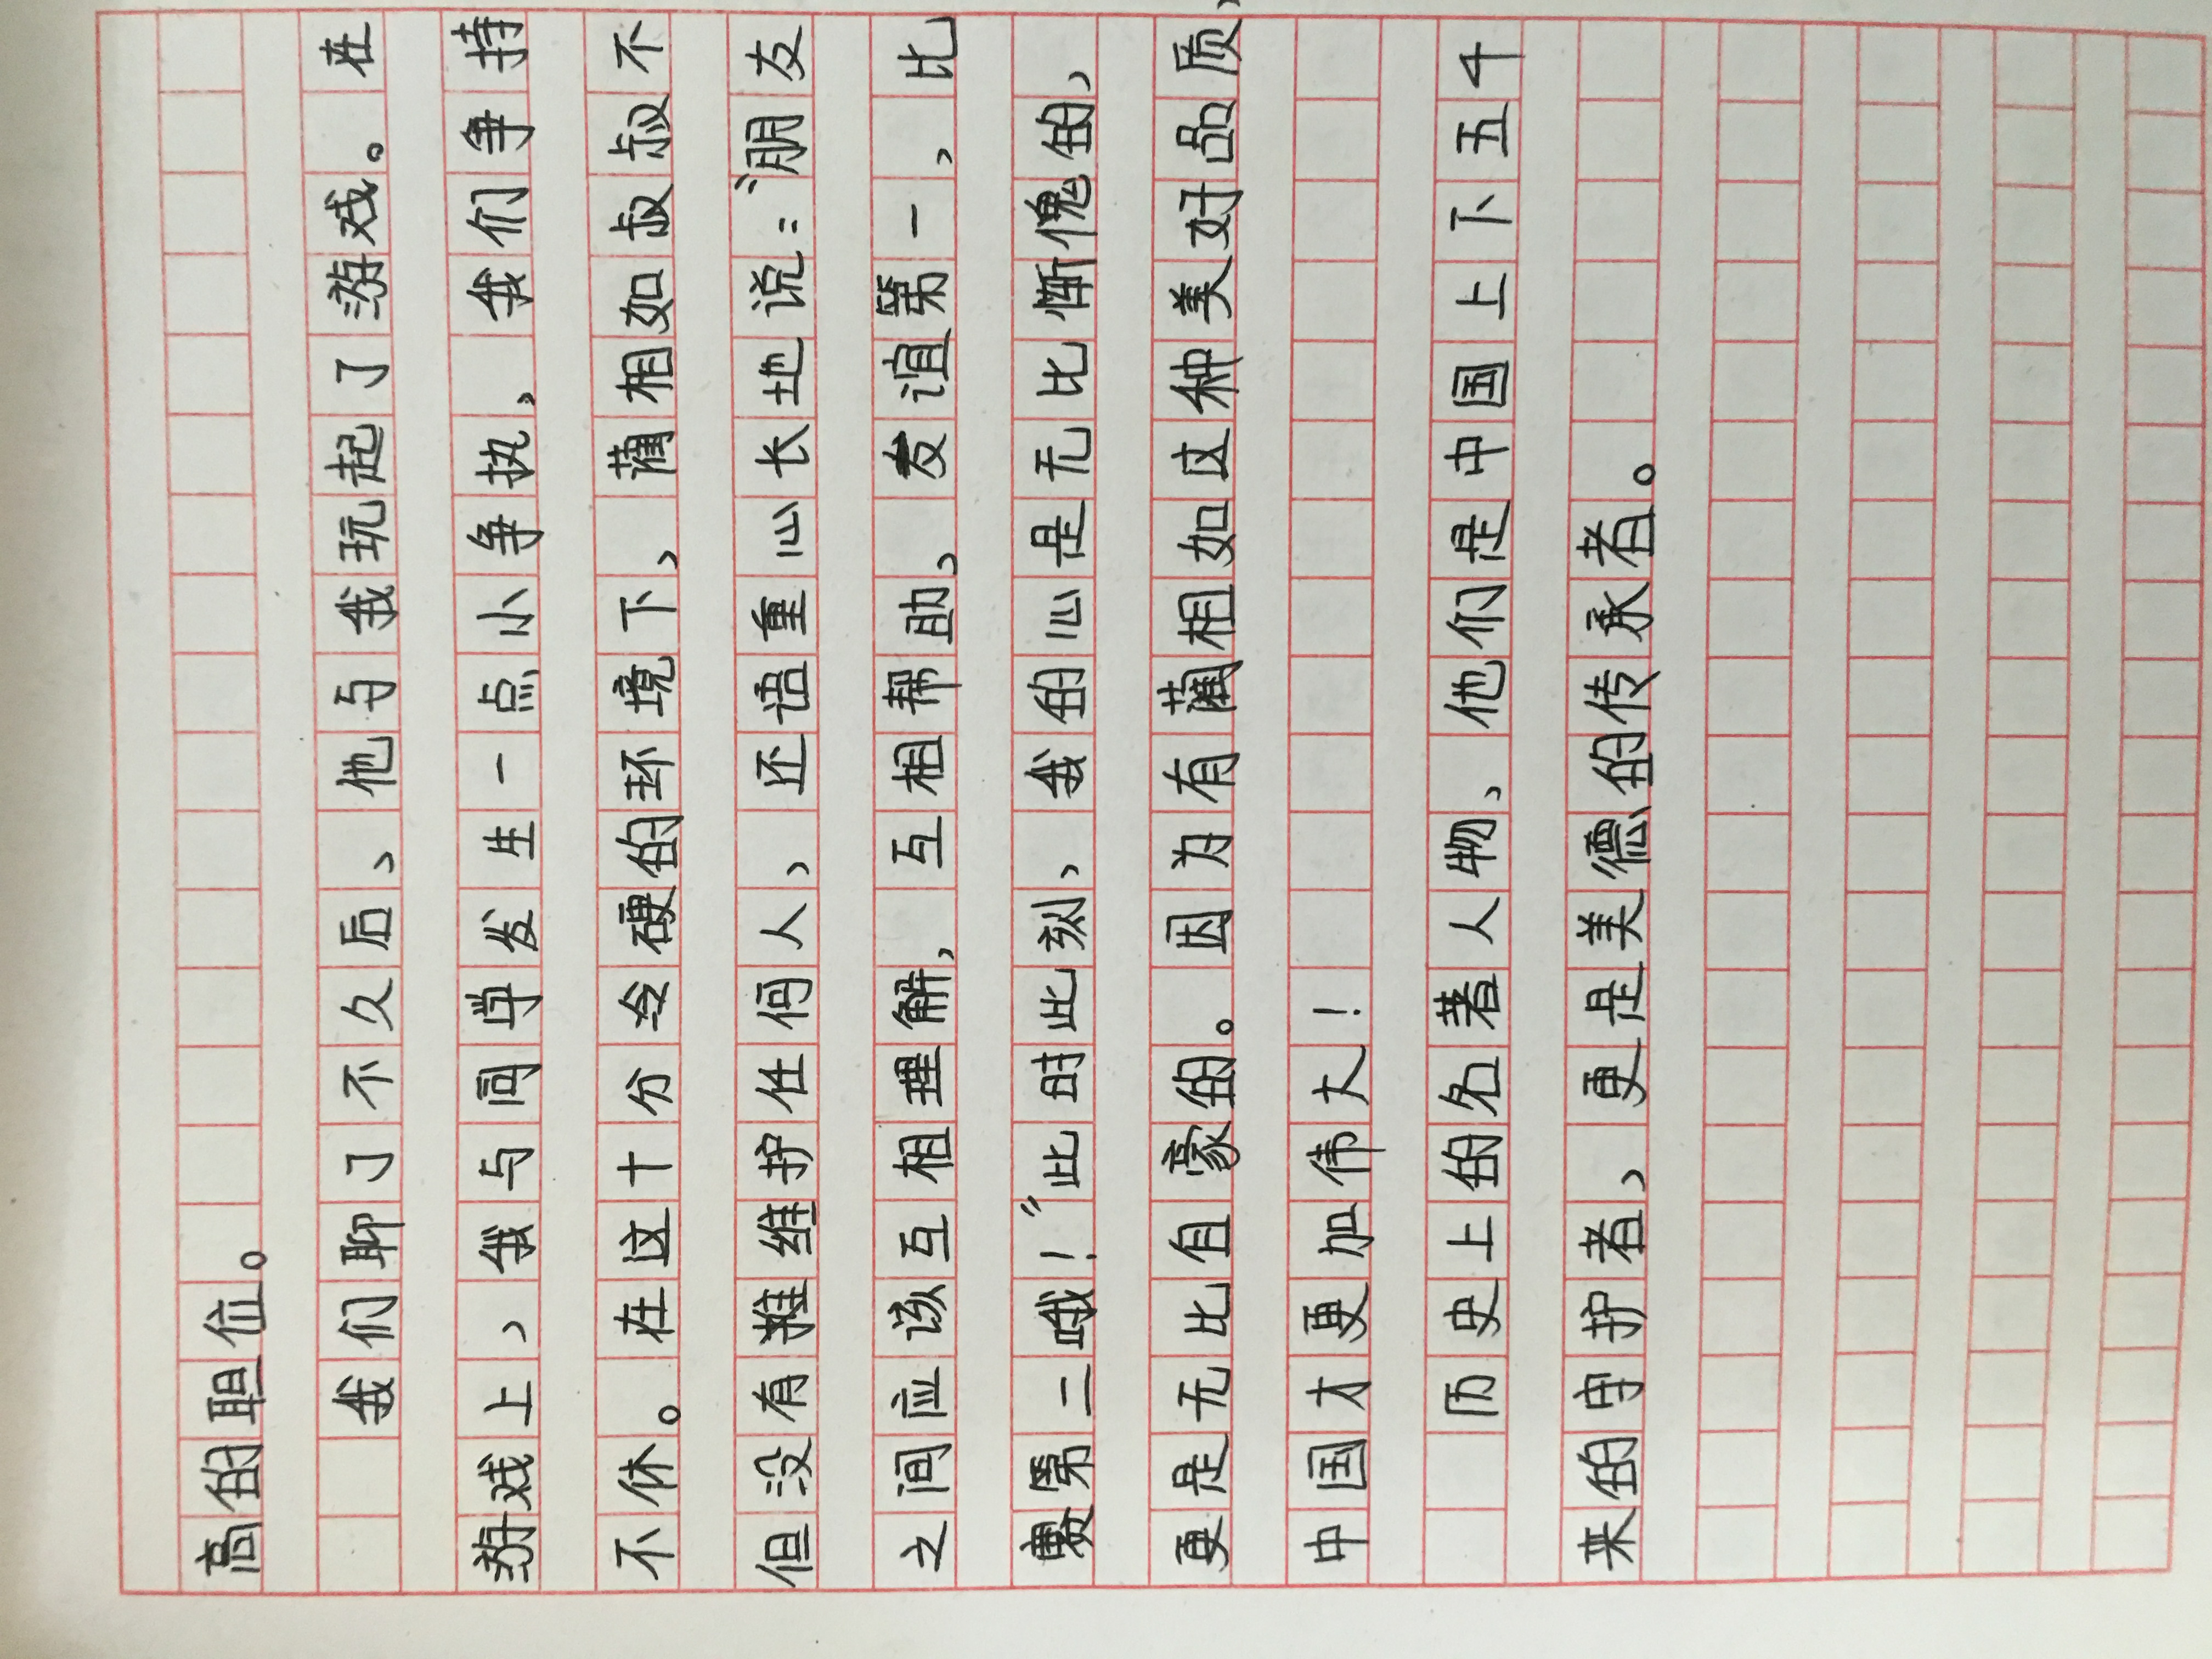 高的职位。
我们聊了不久后，他与我玩起了游戏。在
游戏上，我与同学发生一点小争执，我们争持
不休。在这十分冷硬的环境下，蔺相如叔叔不
但没有维护任何人，还语重心长地说：“朋友
之间应该互相理解，互相帮助，友谊第一，比
赛第二哦！”此时此刻，我的心是无比惭愧的，
更是无比自豪的。因为有蔺相如这种美好品质，
中国才更加伟大！
历史上的名著人物，他们是中国上下五千
来的守护者，更是美德的传承者。